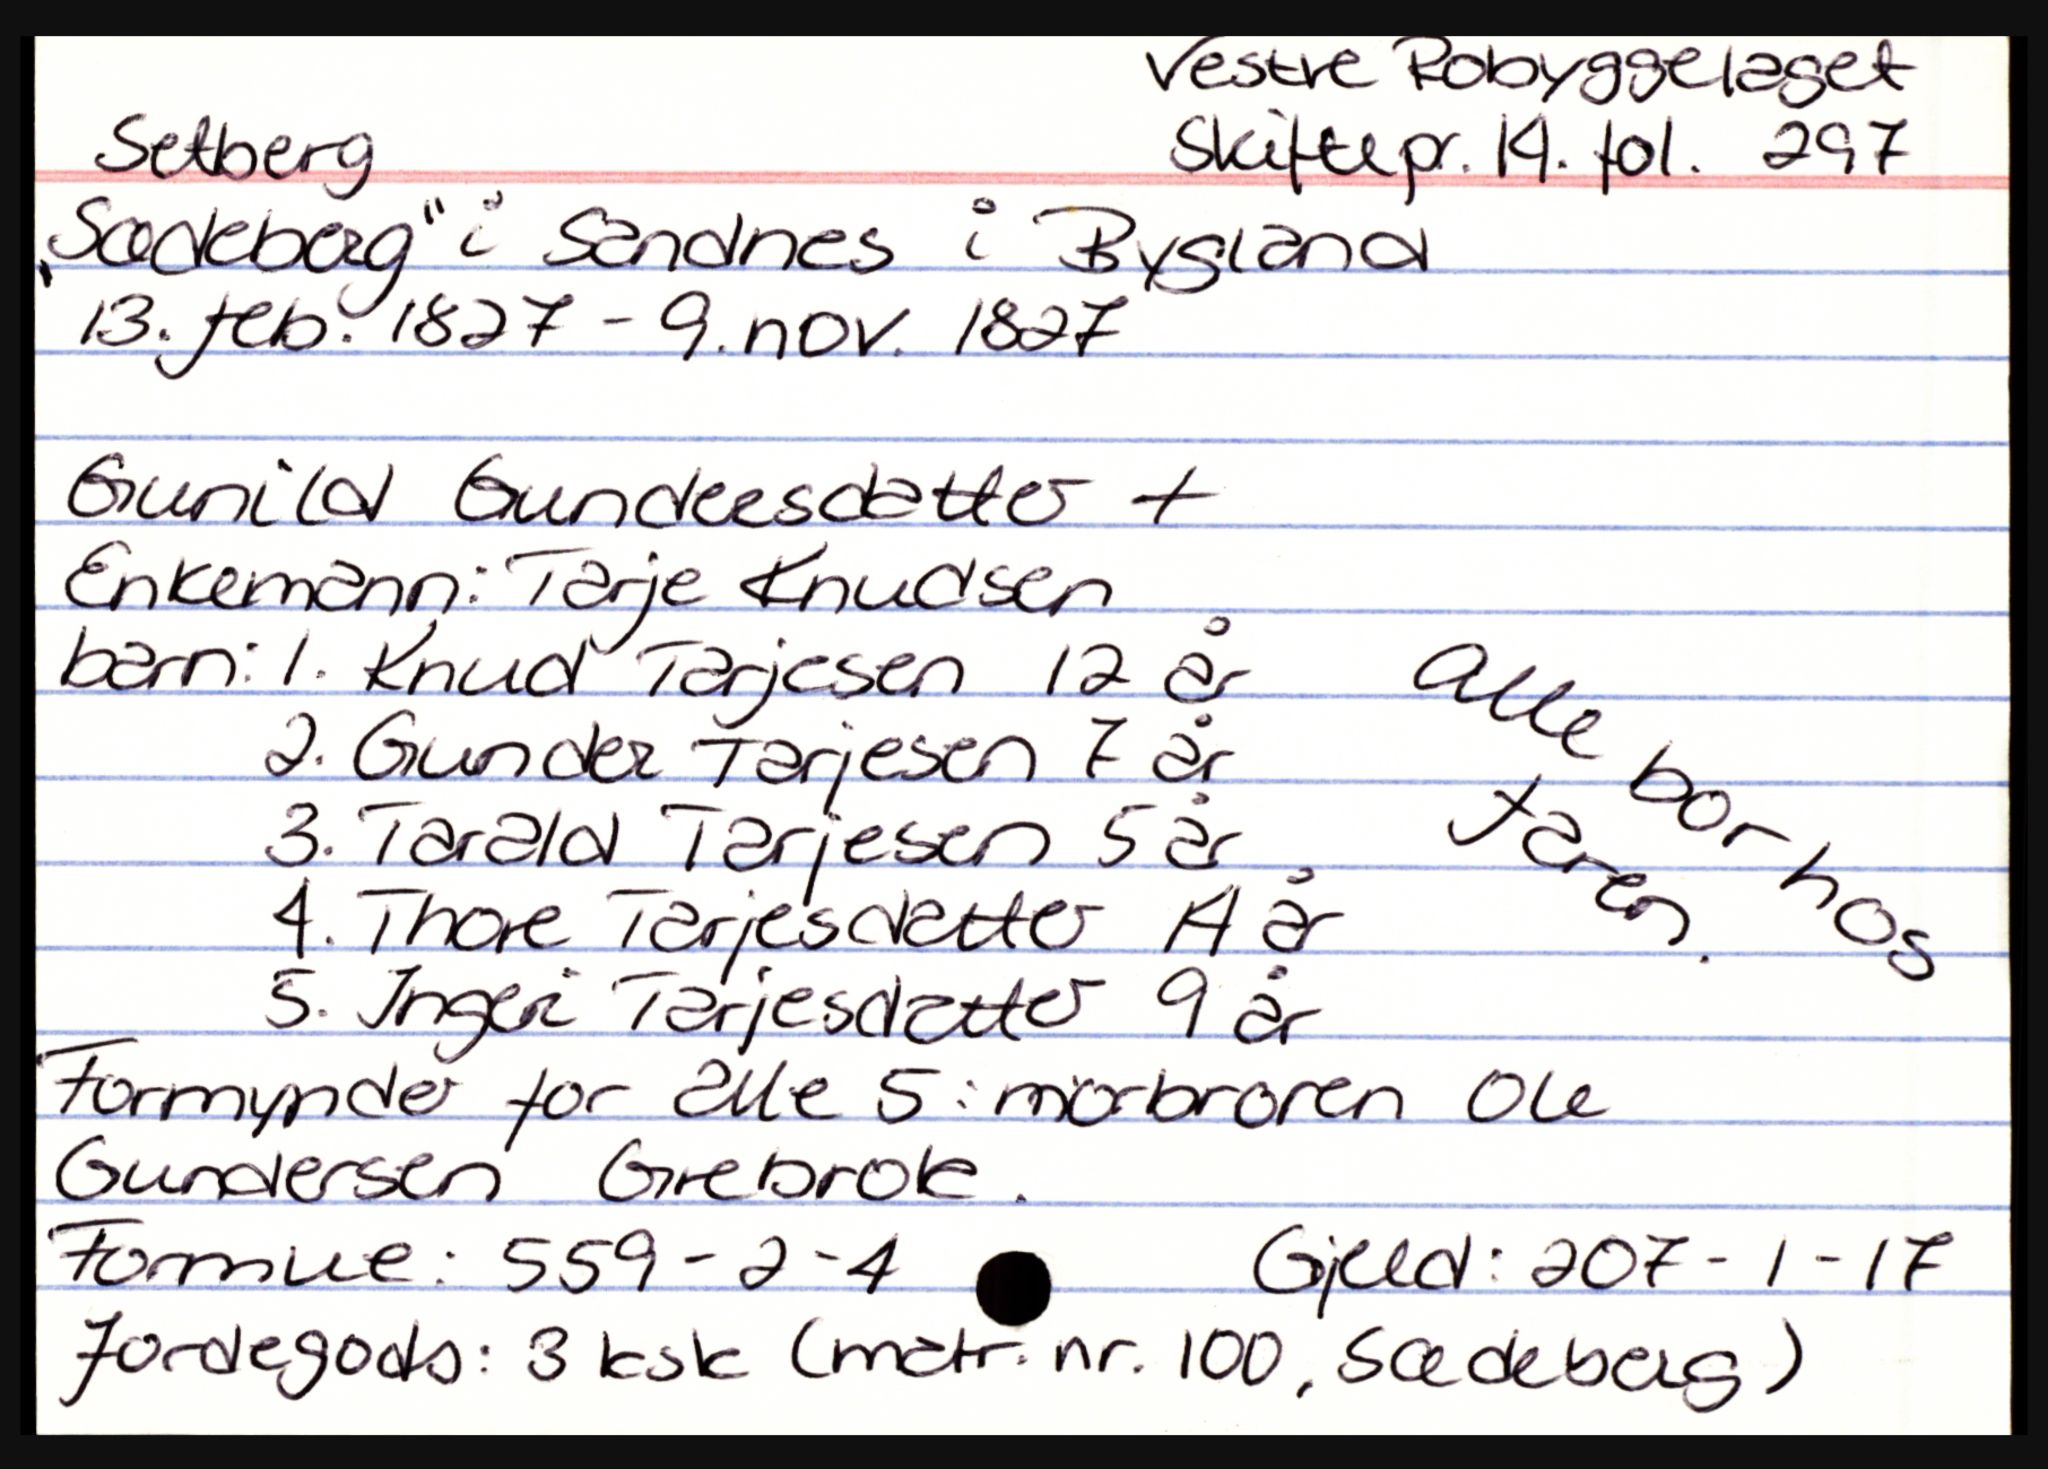 Vestre Robyggelaget
Setberg Skiftepr. 14. fol. 297
„Sædeberg" i Sandnes i Bygland
13. feb. 1827 - 9. nov. 1827
Gunild Gundersdatter +
Enkemann: Tarje Knudsen
barn: 1. Knud Tarjesen 12 år
2. Gunder Tarjesen 7 år
3. Tarald Tarjesen 5 år
4. Thore Tarjesdatter 14 år
5. Ingeri Tarjesdatter 9 år
Alle bor hos
faren.
Formynder for alle 5: morbroren Ole
Gundersen Grebrok.
Formue: 559-2-4 Gjeld: 207-1-17
Jordegods: 3 ksk (matr. nr. 100, Sædeberg)